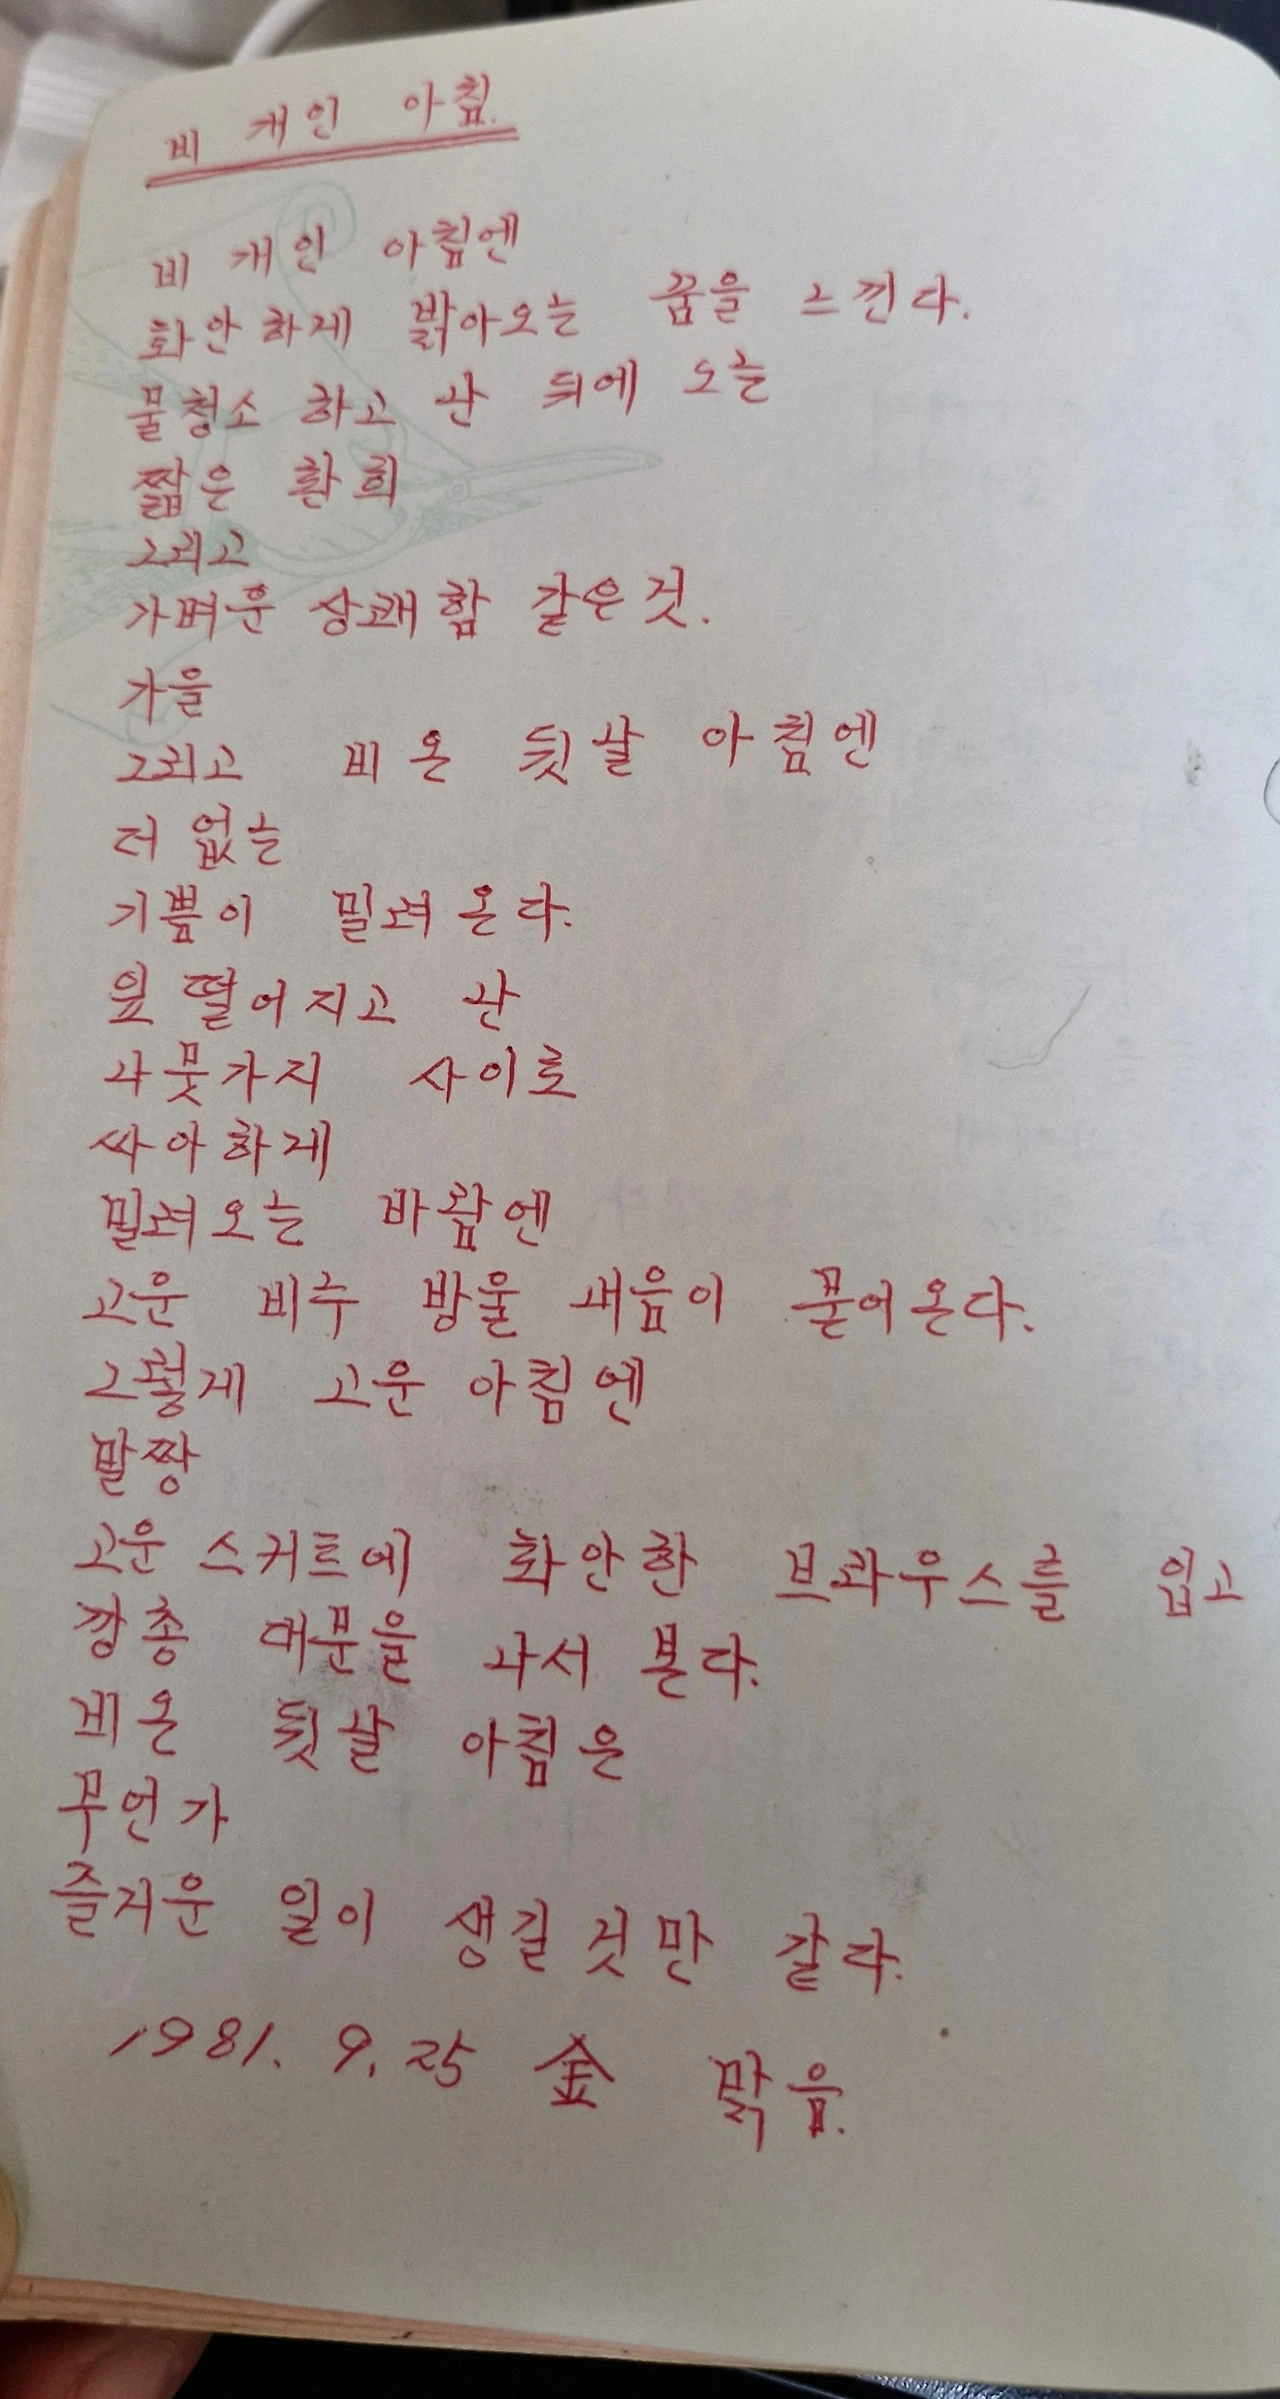 비 개인 아침.
비 개인 아침엔
화안하게 밝아오는 꿈을 느낀다.
물청소 하고 난 뒤에 오는
짧은 환희
그리고
가벼운 상쾌함 같은것.
가을
그리고 비온 뒷날 아침엔
더 없는
기쁨이 밀려 온다.
잎 떨어지고 난
나뭇가지 사이로
싸아하게
밀려오는 바람엔
고운 비누 방울 내음이 묻어온다.
그렇게 고운 아침엔
말짱
고운 스커트에 화안한 브라우스를 입고
깡총 대문을 나서 본다.
비온 뒷날 아침은
무언가
즐거운 일이 생길것만 같다.
1981. 9. 25 金 맑음.